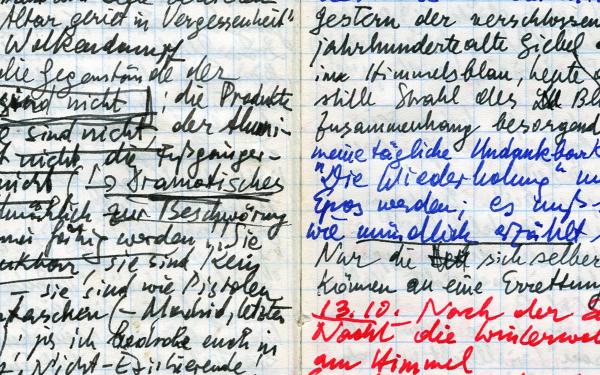 Altar geriet in Vergessenheit"
Wolkendampf
die Gegenstände der
sind nicht; die Produkte
sind nicht, der Alumi-
nicht die Fußgänger-
nicht (→ Dramatisches
zur Beschwörung
fähig werden. Die
, sie sind kein
- sie sind wie Pistolen
taschen (- Madrid, letzten
; ja, ich bedrohe euch in
, Nicht-Existierende!
gestern der verschlossen
jahrhundertealte Giebel
im Himmelsblau, heute
stille Strahl des
Zusammenhang besorgend
meine tägliche Undankbark
"Die Wiederholung"
Epos werden; es muß
wie mündlich erzählt
Nur die sich selber
können an eine Errettung
13.10. Nach der
Nacht die
am Himmel